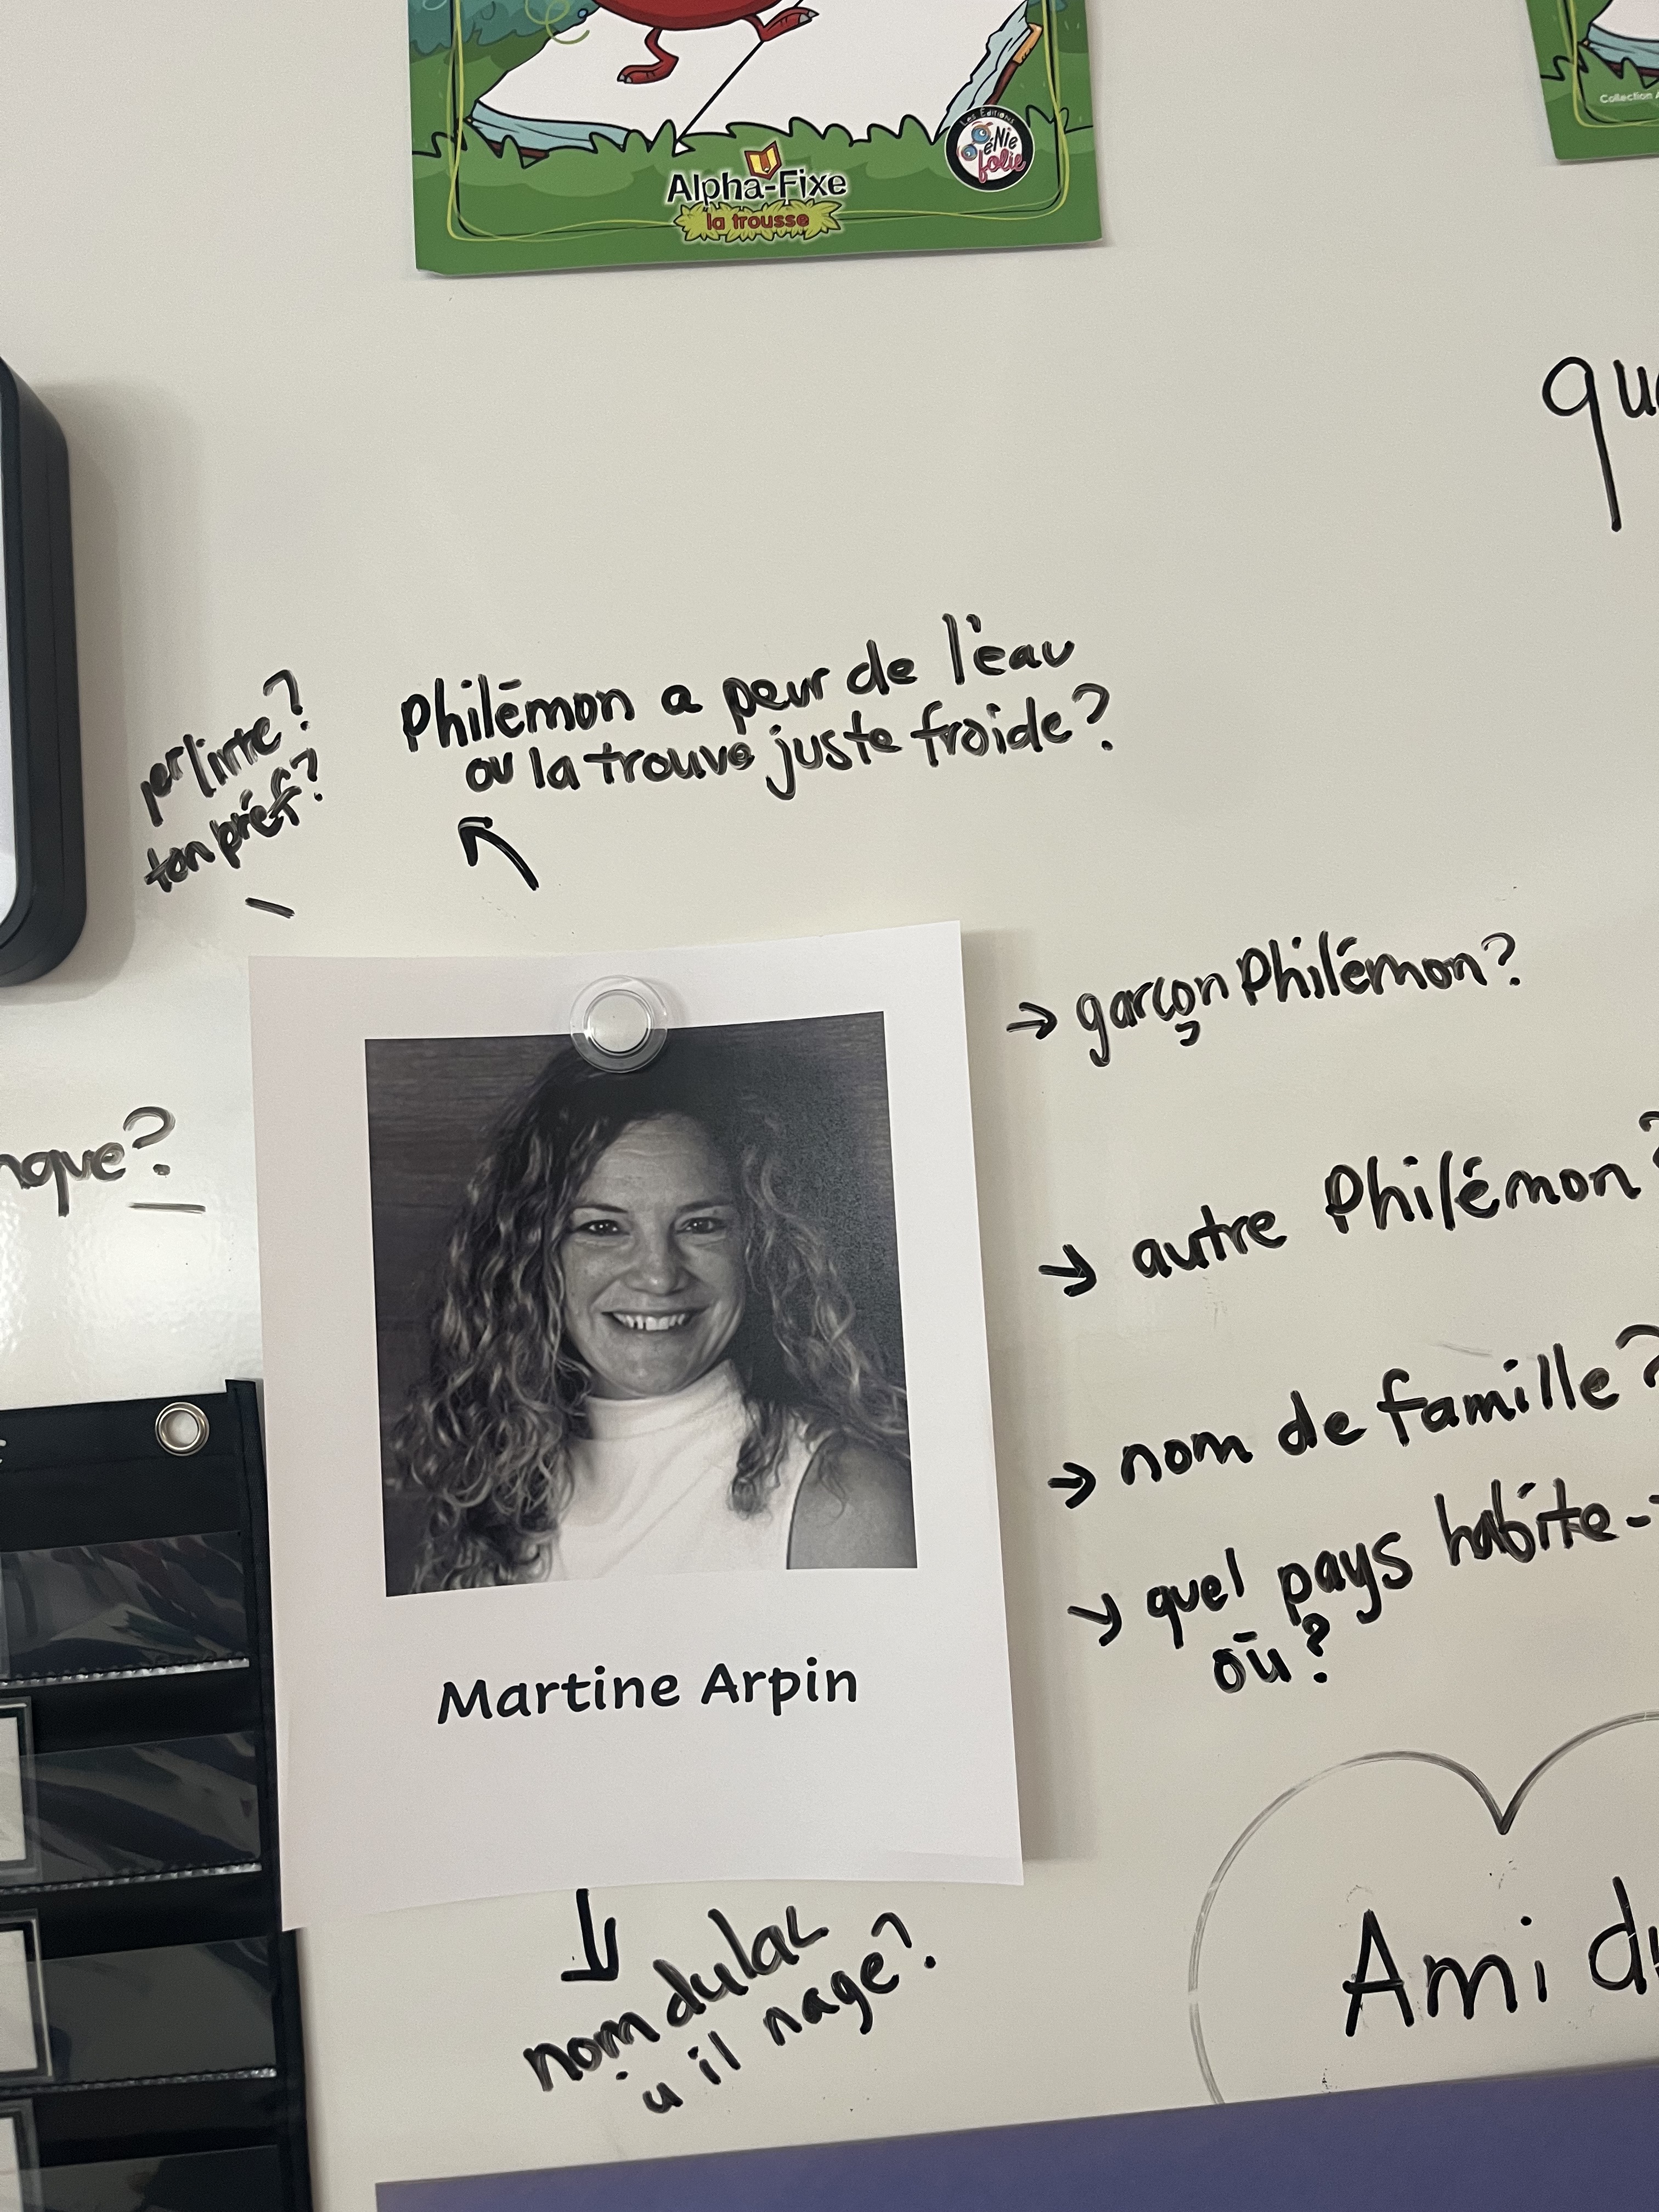 Collection
Les Éditions
GéNie
folie
Alpha-Fixe
la trousse
Philémon a peur de l'eau
ou la trouve juste froide?
ton préf?
→ garçon Philémon?
→ autre Philémon?
→ nom de famille?
→ quel pays habite-
où?
Martine Arpin
nom du lac
ù il nage?
Ami du